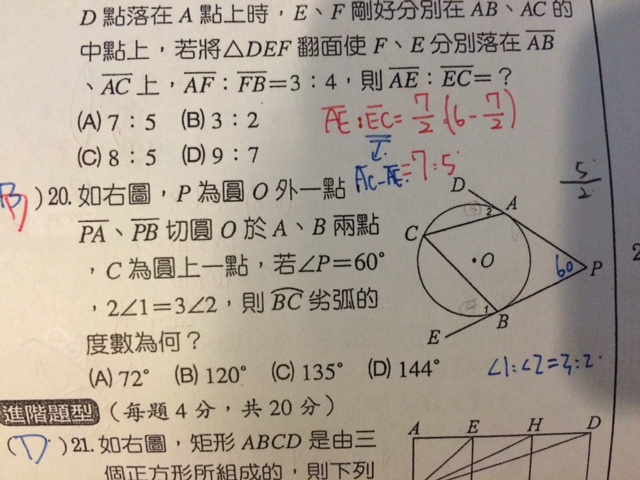 D 點落在 A 點上時，E、F 剛好分別在 AB、AC 的
中點上，若將△DEF 翻面使 F、E 分別落在 AB
、AC 上，AF：FB=3：4，則 AE：EC=？
(A) 7：5 (B) 3：2
AE：EC= 7/2：(6-7/2)
(C) 8：5 (D) 9：7
AC-AE =7:5
5/2
20. 如右圖，P 為圓 O 外一點
PA、PB 切圓 O 於 A、B 兩點
，C 為圓上一點，若∠P=60°
，2∠1=3∠2，則 BC 劣弧的
度數為何？
D
A
2
C
O
60
P
1
B
E
(A) 72° (B) 120° (C) 135° (D) 144°
∠1:∠2=3:2
進階題型 （每題 4 分，共 20 分）
(D) 21. 如右圖，矩形 ABCD 是由三
個正方形所組成的，則下列
A E H D